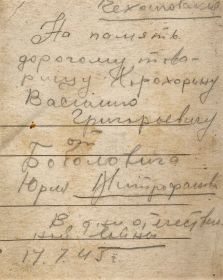 На память
дорогому това-
рищу Хорохорину
Василию
Григорьевичу
от
Боголовича
Юрия Митрофанов
В дни отечествен
ной войны
17.7.45 г.